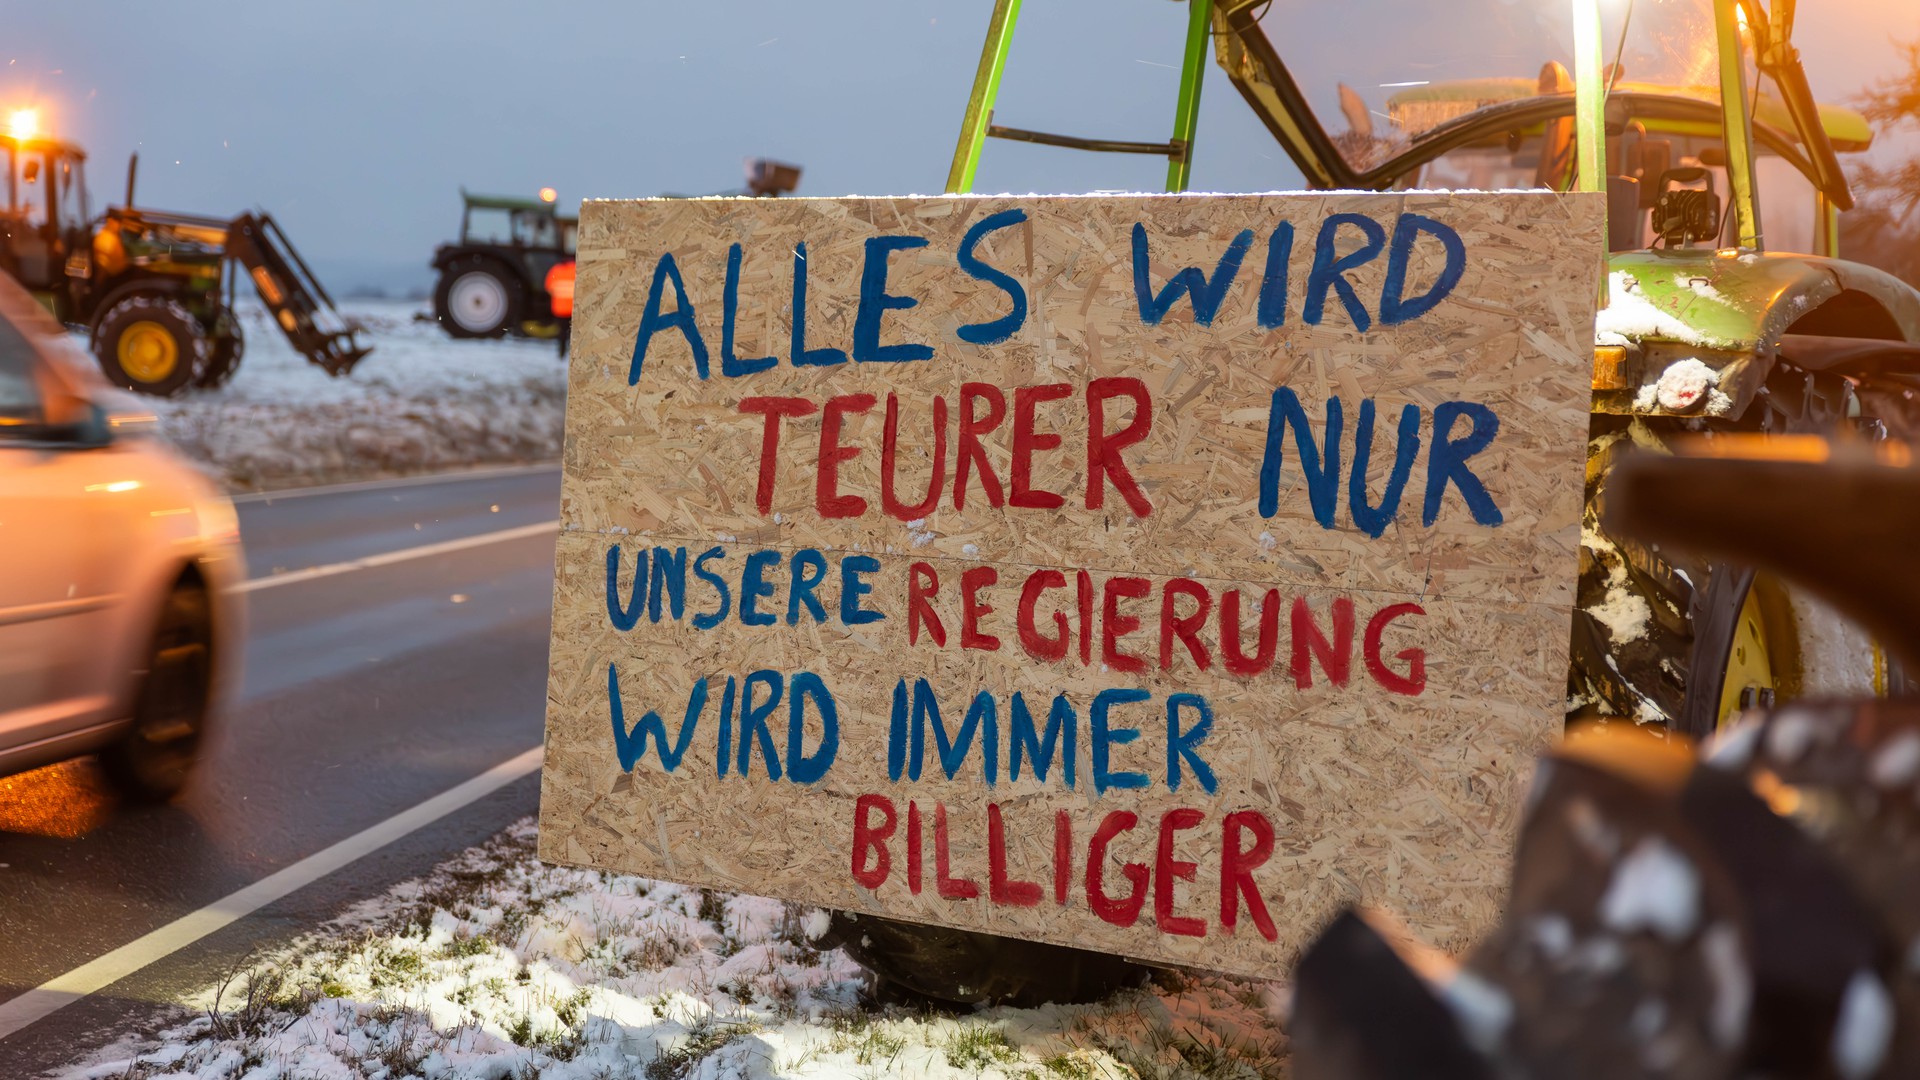 ALLES WIRD
TEURER NUR
UNSERE REGIERUNG
WIRD IMMER
BILLIGER